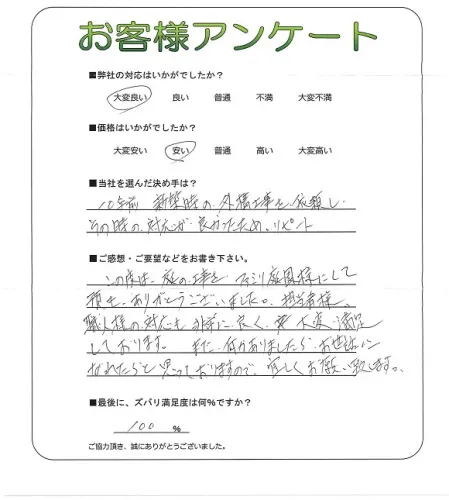 お客様アンケート
■弊社の対応はいかがでしたか?
大変良い 良い 普通 不満 大変不満
■価格はいかがでしたか?
大変安い 安い 普通 高い 大変高い
■当社を選んだ決め手は?
10年前 新築時の、外構工事を依頼し
その時の対応が良かったため、リピート
■ご感想・ご要望などをお書き下さい。
この度は、庭の工事を 庭園様にして
頂き、ありがとうございました。担当者様、
職人様の対応も非常に良く、大変満足
しております。 また、何かありましたら、お世話に
なれたらと思っておりますので、宜しくお願い致します。
■最後に、ズバリ満足度は何%ですか?
100 %
ご協力頂き、誠にありがとうございました。